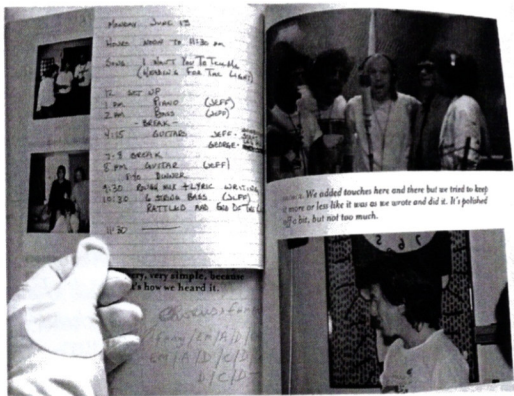 MONDAY JUNE 13
HOURS NOON TO 11:30 PM
SONG: I WANT YOU TO TELL ME
(HEADING FOR THE LIGHT)
12 SET UP
1 PM PIANO (JEFF)
2 PM BASS (JEFF)
- BREAK -
4:15 GUITARS JEFF -
GEORGE -
7-8 BREAK
8 PM GUITAR (JEFF)
DINNER
9:30 ROUGH MIX + LYRIC WRITING
10:30 6 STRING BASS (JEFF)
RATTLED
11:30
very, very simple, because
's how we heard it.
EM/A/D/C/D
D/C/D
We added touches here and there but we tried to keep
it more or less like it was as we wrote and did it. It's polished
off a bit, but not too much.